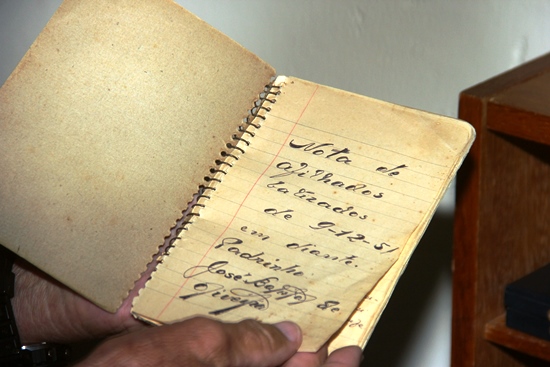 Nota de
afilhados
batizados.
de 9-12-51
em diante.
Padrinho.
José